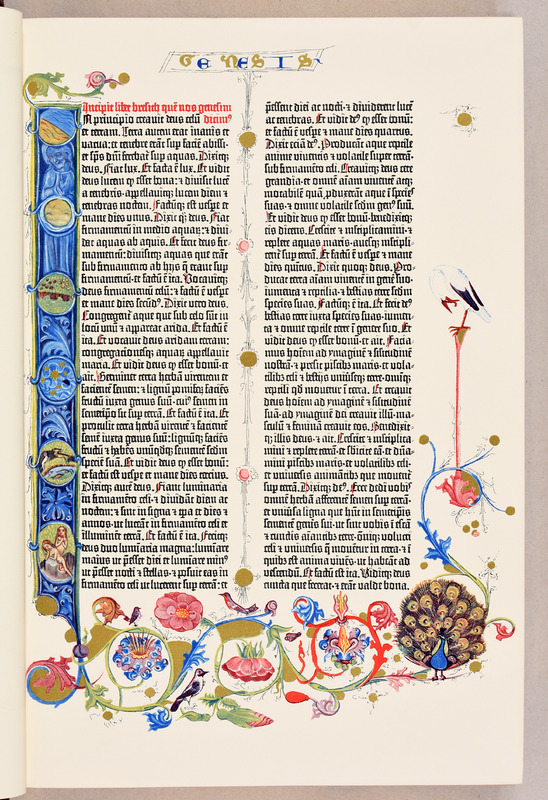 GENESIS
Incipit liber bresith quē nos genesim
A principio creauit deus celū dicim⁹
et terram. Terra autem erat inanis et
vacua: et tenebre erāt sup faciē abissi:
et sp̄s dn̄i ferebat᷑ sup aquas. Dixitqꝫ
deus. Fiat lux. Et facta ē lux. Et vidit
deus lucem ꝙ esset bona: et diuisit lucē
a tenebris. appellauitqꝫ lucem diem et
tenebras noctem. Factūqꝫ est vespe et
mane dies vnus. Dixit qꝫ deus. Fiat
firmamentū in medio aquaꝝ: et diui-
dat aquas ab aquis. Et fecit deus fir-
mamentū: diuisitqꝫ aquas que erāt
sub firmamento ab hijs q̄ erant sup
firmamentū: et factū ē ita. Vocauitqꝫ
deus firmamentū celū: et factū ē vespe
et mane dies secūd⁹. Dixit vero deus.
Congregent᷑ aque que sub celo sūt in
locū vnū et appareat arida. Et factū ē
ita. Et vocauit deus aridam terram:
congregacionesqꝫ aquaꝝ appellauit
maria. Et vidit deus ꝙ esset bonū. et
ait. Germinet terra herbā virentem et
facientē semen: et lignū pomifeꝝ faciēs
fructū iuxta genus suū. cui⁹ semen in
semetipō sit sup terrā. Et factū ē ita. Et
protulit terra herbā virentē et facientē
semē iuxta genus suū: lignūqꝫ faciēs
fructū et habēs vnūqdqꝫ semētē scdm
speciē suā. Et vidit deus ꝙ esset bonū:
et factū est vespe et mane dies tercius.
Dixitqꝫ deus. Fiant luminaria
in firmamēto celi. et diuidāt diem ac
noctem: et sint in signa et tpa et dies et
annos. ut luceāt in firmamēto celi et
illuminēt terrā. Et factū ē ita. Fecitqꝫ
deus duo luminaria magna: luminare
maius ut ꝑesset diei et luminare min⁹
ut ꝑesset nocti et stellas. et posuit eas in
firmamēto celi ut lucerent sup terrā: et
ꝑessent diei ac nocti. et diuiderent lucē
ac tenebras. Et vidit de⁹ ꝙ esset bonū:
et factū ē vespe et mane dies quartus.
Dixit eciā de⁹. Producāt aque reptile
anime viuentis et volatile super terrā.
sub firmamēto celi. Creauitqꝫ deus cete
grandia. et omnē aīam viuentē atqꝫ
motabilē quā ꝓduxerāt aque ī species
suas. et omne volatile scdm gen⁹ suū.
Et vidit deus ꝙ esset bonū. benedixitqꝫ
eis dicens. Crescite et multiplicamini. et
replete aquas maris. auesqꝫ mltipli-
cent᷑ sup terrā. Et factū ē vespe et mane
dies quītus. Dixit quoqꝫ deus. Pro-
ducat terra aīam viuentē in genē suo.
iumenta et reptilia. et bestias terre scdm
species suas. Factūqꝫ ē ita. Et fecit de⁹
bestias terre iuxta species suas. iumen-
ta et omne reptile terre ī genere suo. Et
vidit deus ꝙ esset bonū. et ait. Facia-
mus hoīem ad ymaginē et silitudinē
nostrā. et presit piscibs maris. et vola-
tilibs celi et bestijs vniūseqꝫ terre. omniqꝫ
reptili qd mouetur ī terra. Et creauit
deus hoīem ad ymaginē et silitudinē
suā. ad ymaginē dei creauit illū. ma-
sculū et feminā creauit eos. Benedixit-
qꝫ illis deus. et ait. Crescite et mltiplica-
mini et replete terrā. et subicite eā. et dn̄a-
mini piscibs maris. et volatilibs celi.
et vniuersis animātibs que mouent᷑
sup terrā. Dixitqꝫ de⁹. Ecce dedi vobis
omnē herbā afferentē semen sup terrā.
et vniūsa ligna que hn̄t in semetipsis
semētē gener̄ sui. ut sint vobis ī escā
et cunctis aīantibs terre. omniqꝫ volucri
celi et vniuersis q̄ mouent᷑ in terra. et ī
quibs est anima viuēs. ut habeāt ad
vescendū. Et factū est ita. Viditqꝫ deus
cuncta que fecerat. et erāt valde bona.